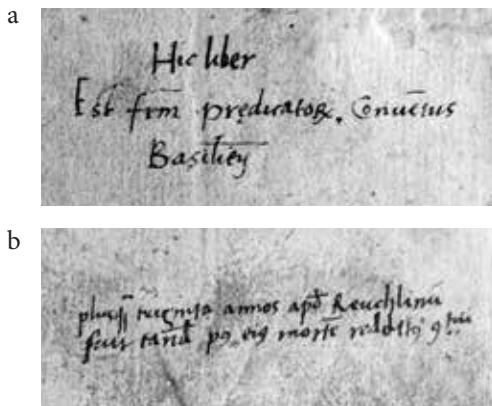 a
Hic liber
Est frm̄ prędicatoꝝ. Cōnuētus
Basilieñ
b
plusq̄ triginta annos apd̄ Reuchlinū
fuit tandē pꝰ eiꝰ mortē redditꝰ ꝯtui